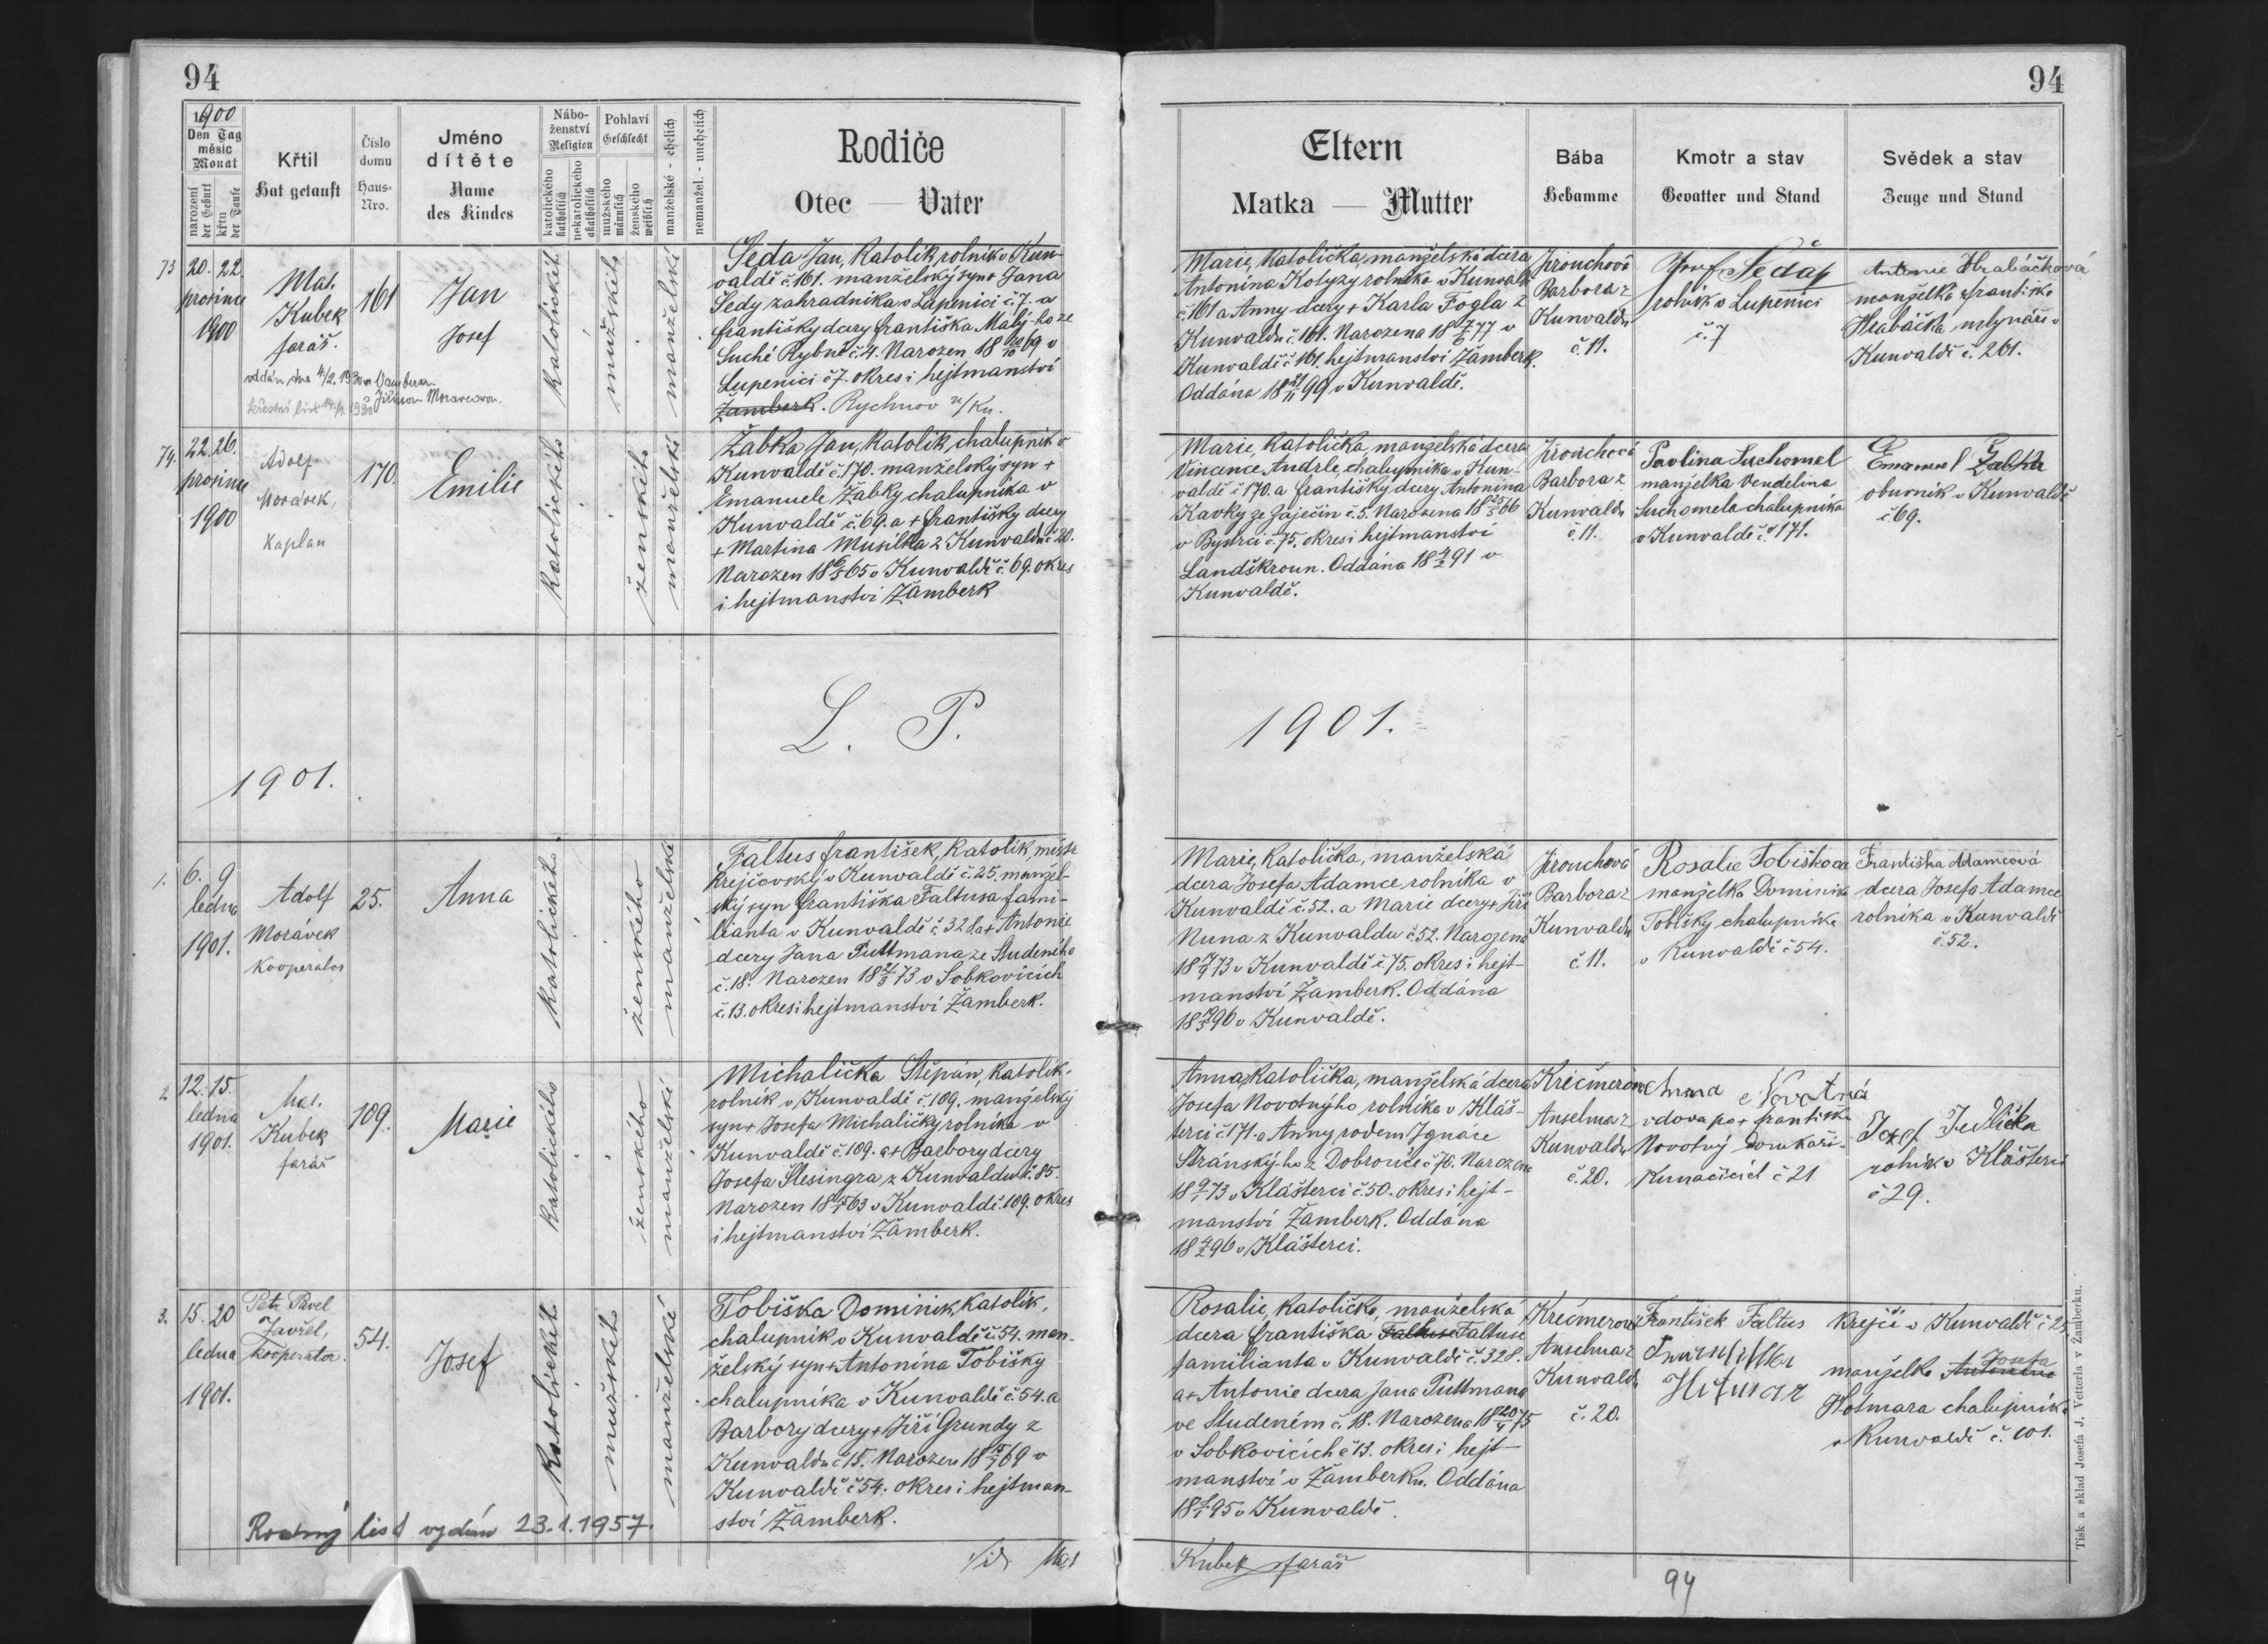 94
94
1900
Den Tag
měsíc
Monat
narození
der Geburt
křtu
der Taufe
Křtil
Hat getauft
Číslo
domu
Haus-
Nro.
Jméno
dítěte
Name
des Kindes
Nábo-
ženství
Religion
katolického
katholisch
nekatolického
akatholisch
Pohlaví
Geschlecht
mužského
männlich
ženského
weiblich
manželské - ehelich
nemanžel. - unehelich
Rodiče
Otec — Vater
Eltern
Matka — Mutter
Bába
Hebamme
Kmotr a stav
Gevatter und Stand
Svědek a stav
Zeuge und Stand
73
20. 22.
prosince
1900
Mat.
Kubek
farář.
oddán dne 4/2. 1930
161
Jan
Josef
Katolického
mužského
manželské
Šeda Jan, Katolík, rolník v Kun-
valdě č. 161. manželský syn + Jana
Šedy zahradníka v Lupenici č. 7. a
Františky dcery Františka Malý-ho ze
Suché Rybné č. 4. Narozen 18 69 v
Lupenici č 7. okres i hejtmanství
Žamberk. Rychnov n/Kn.
Marie, Katolička, manželská dcera
Antonína Kotyzy rolníka v Kunvaldě
č. 161 a Anny dcery + Karla Fogla z
Kunvaldu č. 161. Narozena 18 77 v
Kunvaldě č 161. hejtmanství Žamberk.
Oddána 18 21/11 99 v Kunvaldě.
Jirouchová
Barbora z
Kunvaldu
č. 11.
Josef Šeda
rolník v Lupenici
č. 7
Antonie Hrabáčková
manželka Františka
Hrabáčka mlynáře v
Kunvaldě č. 261.
74.
22. 26.
prosince
1900
Adolf
Morávek,
Kaplan
170.
Emilie
Katolického
ženského
manželské
Žabka Jan, Katolík, chalupník v
Kunvaldě č. 170. manželský syn +
Emanuele Žabky chalupníka v
Kunvaldě č. 69. a + Františky dcery
+ Martina Musílka z Kunvaldu č 20.
Narozen 18 65 v Kunvaldě č. 69. okres
i hejtmanství Žamberk
Marie, Katolička, manželská dcera
Vincence Andrle, chalupníka v Kun-
valdě č 170. a Františky dcery Antonína
Kavky ze Zaječin č. 5. Narozena 18 66
v Bystrci č. 75. okres i hejtmanství
Landškroun. Oddána 18 91 v
Kunvaldě.
Jirouchová
Barbora z
Kunvaldu
č. 11.
Pavlina Suchomel
manželka Vendelína
Suchomela chalupníka
v Kunvaldě č. 171.
Emanuel Žabka
obuvník v Kunvaldě
č. 69.
L. P.
1901.
1901.
1.
6. 9
ledna
1901.
Adolf
Morávek
Kooperator
25.
Anna
Katolického
ženského
manželské
Faltus František, Katolík, mistr
krejčovský v Kunvaldě č. 25. manžel-
ský syn Františka Faltusa fami-
lianta v Kunvaldě č 328 a + Antonie
dcery Jana Puttmana ze Studeného
č. 18. Narozen 18 73 v Sobkovicích
č. 13. okres i hejtmanství Žamberk.
Marie, Katolička, manželská
dcera Josefa Adamce, rolníka v
Kunvaldě č. 52. a Marie dcery + Jiří
Nuna z Kunvaldu č. 52. Narozena
18 73 v Kunvaldě č. 75. okres i hejt-
manství Žamberk. Oddána
18 96 v Kunvaldě.
Jirouchová
Barbora z
Kunvaldu
č. 11.
Rosalie Tobišková
manželka Dominika
Tobišky chalupníka
v Kunvaldě č 54.
Františka Adamcová
dcera Josefa Adamce
rolníka v Kunvaldě
č. 52.
2
12. 15.
ledna
1901.
Mat.
Kubek
farář
109.
Marie
Katolického
ženského
manželské
Michalička Štěpán, Katolík,
rolník v Kunvaldě č. 109. manželský
syn + Josefa Michaličky rolníka v
Kunvaldě č. 109. a + Barbory dcery
Josefa Šlesingra z Kunvaldu č. 85.
Narozen 18 63 v Kunvaldě č. 109. okres
i hejtmanství Žamberk.
Anna, Katolička, manželská dcera
Josefa Novotnýho rolníka v Kláš-
terci č 171. a Anny rodem Ignáce
Stránský-ho z Dobrovice č 70. Narozena
18 73 v Klášterci č. 50. okres i hejt-
manství Žamberk. Oddána
18 96 v Klášterci.
Krečmerová
Anselma z
Kunvaldu
č. 20.
Anna Novotná
vdova po + Františku
Novotný
Kunačicích č 21
Josef Jedlička
rolník v Klášterci
č 29.
3.
15. 20
ledna
1901.
Petr Pavel
Javřel,
Kooperator.
54.
Josef
Katolického
mužského
manželské
Tobiška Dominik, Katolík,
chalupník v Kunvaldě č. 54. man-
želský syn + Antonína Tobišky
chalupníka v Kunvaldě č. 54. a
Barbory dcery + Jiří Grundy z
Kunvaldu č 15. Narozen 18 69 v
Kunvaldě č 54. okres i hejtman-
ství Žamberk.
Rodný list vydán 23.1.1957.
Rosalie, Katolička, manželská
dcera Františka Faltuse Faltuse
familianta v Kunvaldě č. 328.
a + Antonie dcera Jana Puttmana
ve Studeném č. 18. Narozena 18 75
v Sobkovicích č 13. okres i hejt-
manství v Žamberku. Oddána
18 95 v Kunvaldě.
Krečmerová
Anselma z
Kunvaldu
č. 20.
František Faltus
krejčí v Kunvaldě č 25
manželka Antonína Josefa
Hotmara chalupníka
v Kunvaldě č. 101.
Vidi Mat
Kubek farář
94
Tisk a sklad Josefa J. Vetterla v Žamberku.